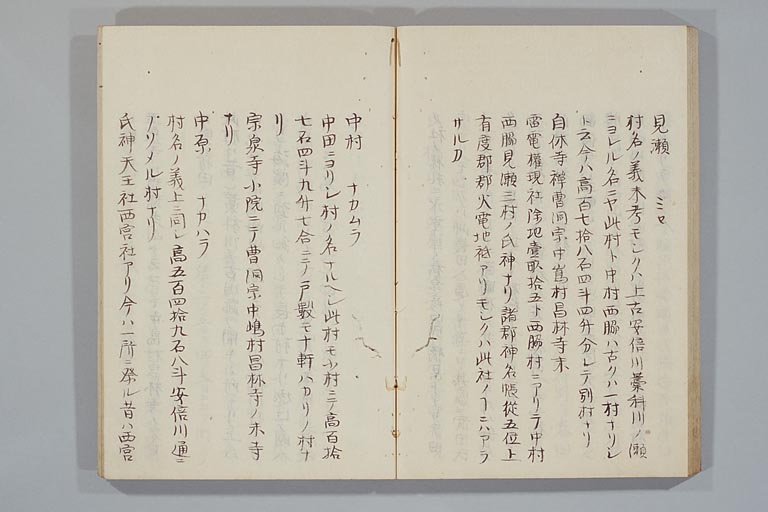 見瀬 ミセ
村名ノ義未考モシクハ上古安倍川藁科川ノ瀬
ニヨレル名ニヤ此村ト中村西脇ハ古クハ一村ナリシ
トテ今ハ高百七拾八石四斗四升分レテ別村ナリ
自休寺禅曹洞宗中嶌村昌林寺末
雷電権現社除地壹畝拾五ト西脇村ニアリテ中村
西脇見瀬三村ノ氏神ナリ諸郡神名帳從五位上
有度郡郡火電地祗アリモシクハ此社ノ ニハアラ
サルカ
中村 ナカムラ
中田ニヨリシ村ノ名ナルヘシ此村モ小村ニテ高百拾
七石四斗九升七合ニテ戸數モ十軒ハカリノ村ナ
リ
宗泉寺小院ニテ曹洞宗中嶋村昌林寺ノ末寺
ナリ
中原 ナカハラ
村名ノ義上ニ同シ高五百四拾九石八斗安倍川通ニ
ソリメル村ナリ
氏神天王社西宮社アリ今ハ一所ニ祭ル昔ハ西宮